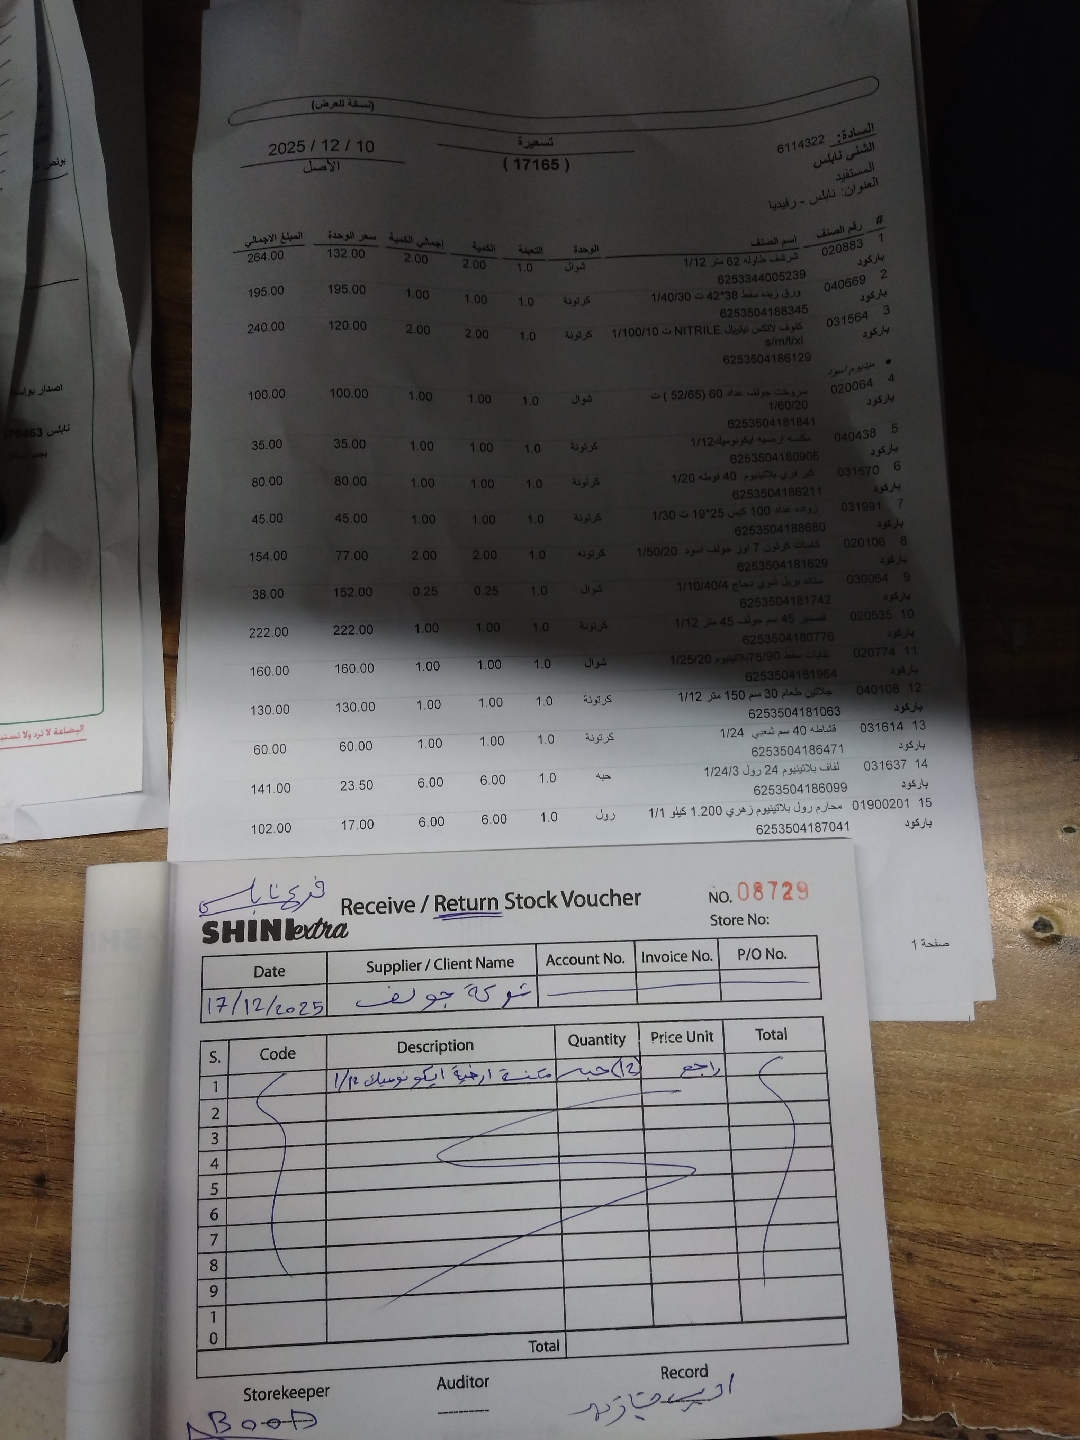 (نسخة للعرض)
السادة: 6114322
الشني نابلس
المستفيد
العنوان: نابلس - رفيديا
تسعيرة
( 17165 )
2025 / 12 / 10
الأصل
# رقم الصنف اسم الصنف الوحدة التعبئة الكمية إجمالي الكمية سعر الوحدة المبلغ الاجمالي
1 020883 شرشف طاوله 62 متر 1/12 شوال 1.0 2.00 2.00 132.00 264.00
باركود 6253344005239
2 040669 ورق زبده سفط 38*42 ت 1/40/30 كرتونة 1.0 1.00 1.00 195.00 195.00
باركود 6253504188345
3 031564 كفوف لاتكس نيتريل NITRILE ت 1/100/10 كرتونة 1.0 2.00 2.00 120.00 240.00
s/m/l/xl
باركود 6253504186129
* ميديوم/اسود
4 020064 جولف عداد 60 (52/65 ) ت شوال 1.0 1.00 1.00 100.00 100.00
1/60/20
باركود 6253504181841
5 040438 مكنسه ارضيه ايكونوميك 1/12 كرتونة 1.0 1.00 1.00 35.00 35.00
باركود 6253504180905
6 031570 كير فري بلاتينيوم 40 فوطه 1/20 كرتونة 1.0 1.00 1.00 80.00 80.00
باركود 6253504186211
7 031991 زواده عداد 100 كيس 25*19 ت 1/30 كرتونة 1.0 1.00 1.00 45.00 45.00
باركود 6253504188680
8 020106 كاسات كرتون 7 اوز جولف اسود 1/50/20 كرتونه 1.0 2.00 2.00 77.00 154.00
باركود 6253504181629
9 030064 شوي دجاج 1/10/40/4 شوال 1.0 0.25 0.25 152.00 38.00
باركود 6253504181742
10 020535 قصدير 45 سم جولف 45 متر 1/12 كرتونة 1.0 1.00 1.00 222.00 222.00
باركود 6253504180776
11 020774 نفايات سفط 75/90 بلاتينيوم 1/25/20 شوال 1.0 1.00 1.00 160.00 160.00
باركود 6253504181964
12 040108 جلاتين طعام 30 سم 150 متر 1/12 كرتونة 1.0 1.00 1.00 130.00 130.00
باركود 6253504181063
13 031614 قشاطه 40 سم شعبي 1/24 كرتونة 1.0 1.00 1.00 60.00 60.00
باركود 6253504186471
14 031637 لفاف بلاتينيوم 24 رول 1/24/3 حبه 1.0 6.00 6.00 23.50 141.00
باركود 6253504186099
15 01900201 محارم رول بلاتينيوم زهري 1.200 كيلو 1/1 رول 1.0 6.00 6.00 17.00 102.00
باركود 6253504187041
صفحة 1
اصدار بواس
نابلس
البضاعة لا ترد ولا تستب
فرع نابلس
SHINI extra
Receive / Return Stock Voucher
NO. 08729
Store No:
Date Supplier / Client Name Account No. Invoice No. P/O No.
17/12/2025 شركة جولف
S. Code Description Quantity Price Unit Total
1 مكنسة ارضية ايكونوميك 1/12 (12) حبه راجع
2
3
4
5
6
7
8
9
10
Total
Storekeeper Auditor Record
ABOOD